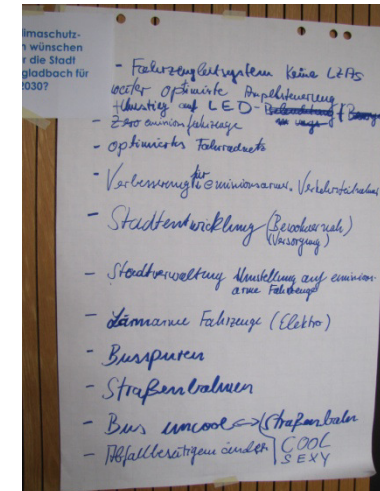 limaschutz-
n wünschen
r die Stadt
gladbach für
2030?
- Fahrzeugleitsystem Keine LZAs
weiter optimierte Ampelsteuerung
+ Umstieg auf LED -
- Zero emissionfahrzeuge
- optimiertes Fahrradnetz
- Verbesserung für emissionsarme Verkehrsteilnehmer
- Stadtentwicklung (Bewohnernah)
(Versorgung)
- Stadtverwaltung Umstellung auf emission-
arme Fahrzeuge
- Lärmarme Fahrzeuge (Elektro)
- Busspuren
- Straßenbahnen
- Bus uncool <=> Straßenbahn
- Abfallbeseitigem ändern COOL
SEXY